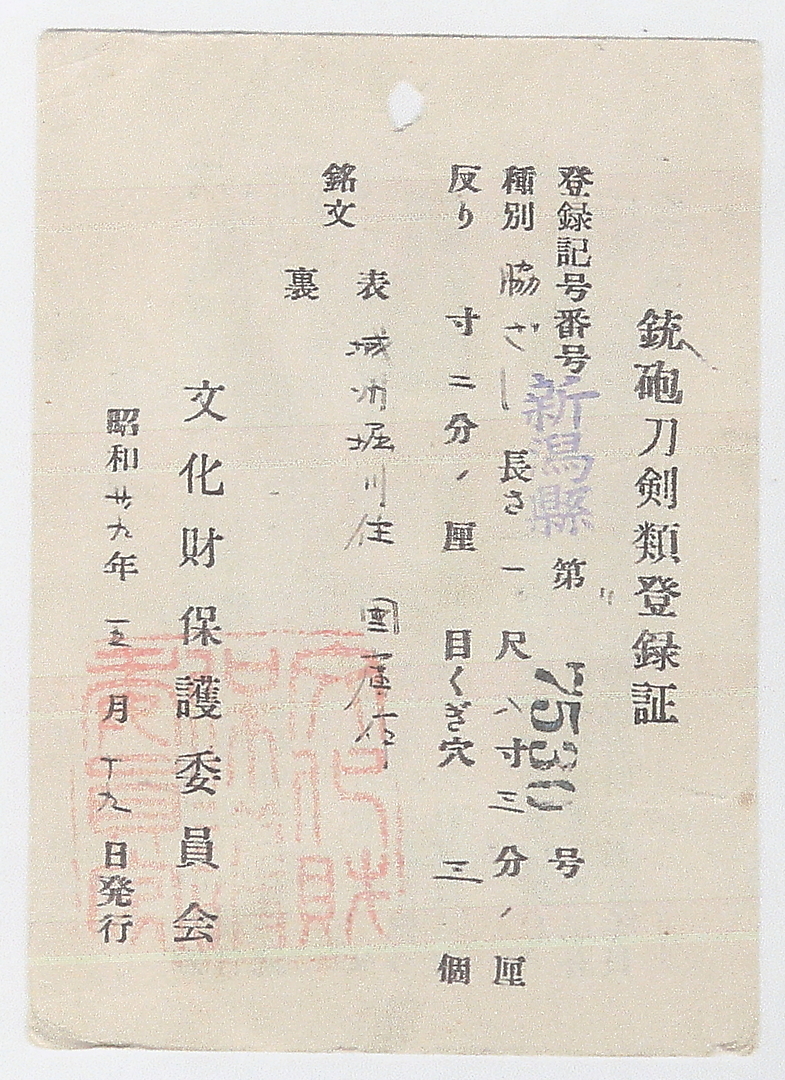 銃砲刀剣類登録証
登録記号番号 新潟縣 第 7530 号
種別 脇ざし 長さ 一尺 八寸 三分 厘
反り 寸 二分 厘 目くぎ穴 三 個
銘文 表 城州堀川住 國
裏
文化財保護委員会
昭和廿九年 月 十九日発行